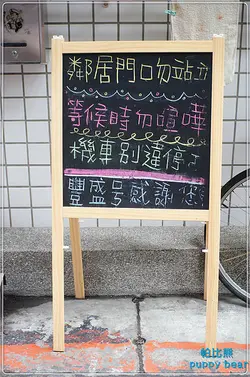 鄰居門口勿站立
等候時勿喧嘩
機車別違停
豐盛号感謝您
帕比熊
puppy bear